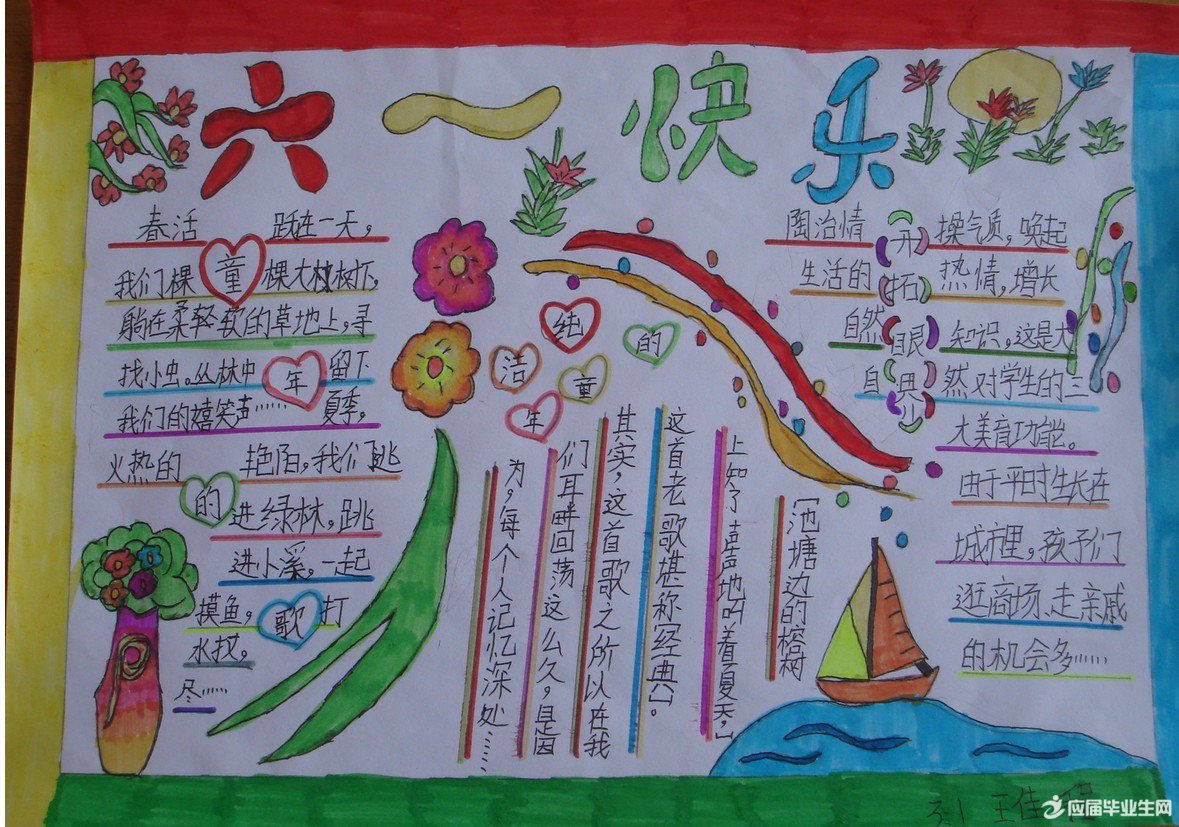 六一快乐
春活 跃在一天，
我们棵 童 棵大树树下
躺在柔轻软的草地上，寻
找小虫。丛林中 年 留下
我们的嬉笑声…… 夏季，
火热的 艳阳，我们跳
的 进绿林，跳
进小溪，一起
摸鱼， 歌 打
水仗。
尽……
纯洁的童年
〔池塘边的榕树
上知了声声地叫着夏天，〕
这首老歌堪称〔经典〕。
其实，这首歌之所以在我
们耳畔回荡这么久，是因
为，每个人记忆深处……
开拓眼界
陶冶情 操气质，唤起
生活的 热情，增长
自然 知识，这是大
自 然对学生的三
大美育功能。
由于平时生长在
城市里，孩子们
逛商场、走亲戚
的机会多……
3.1 王佳
应届毕业生网